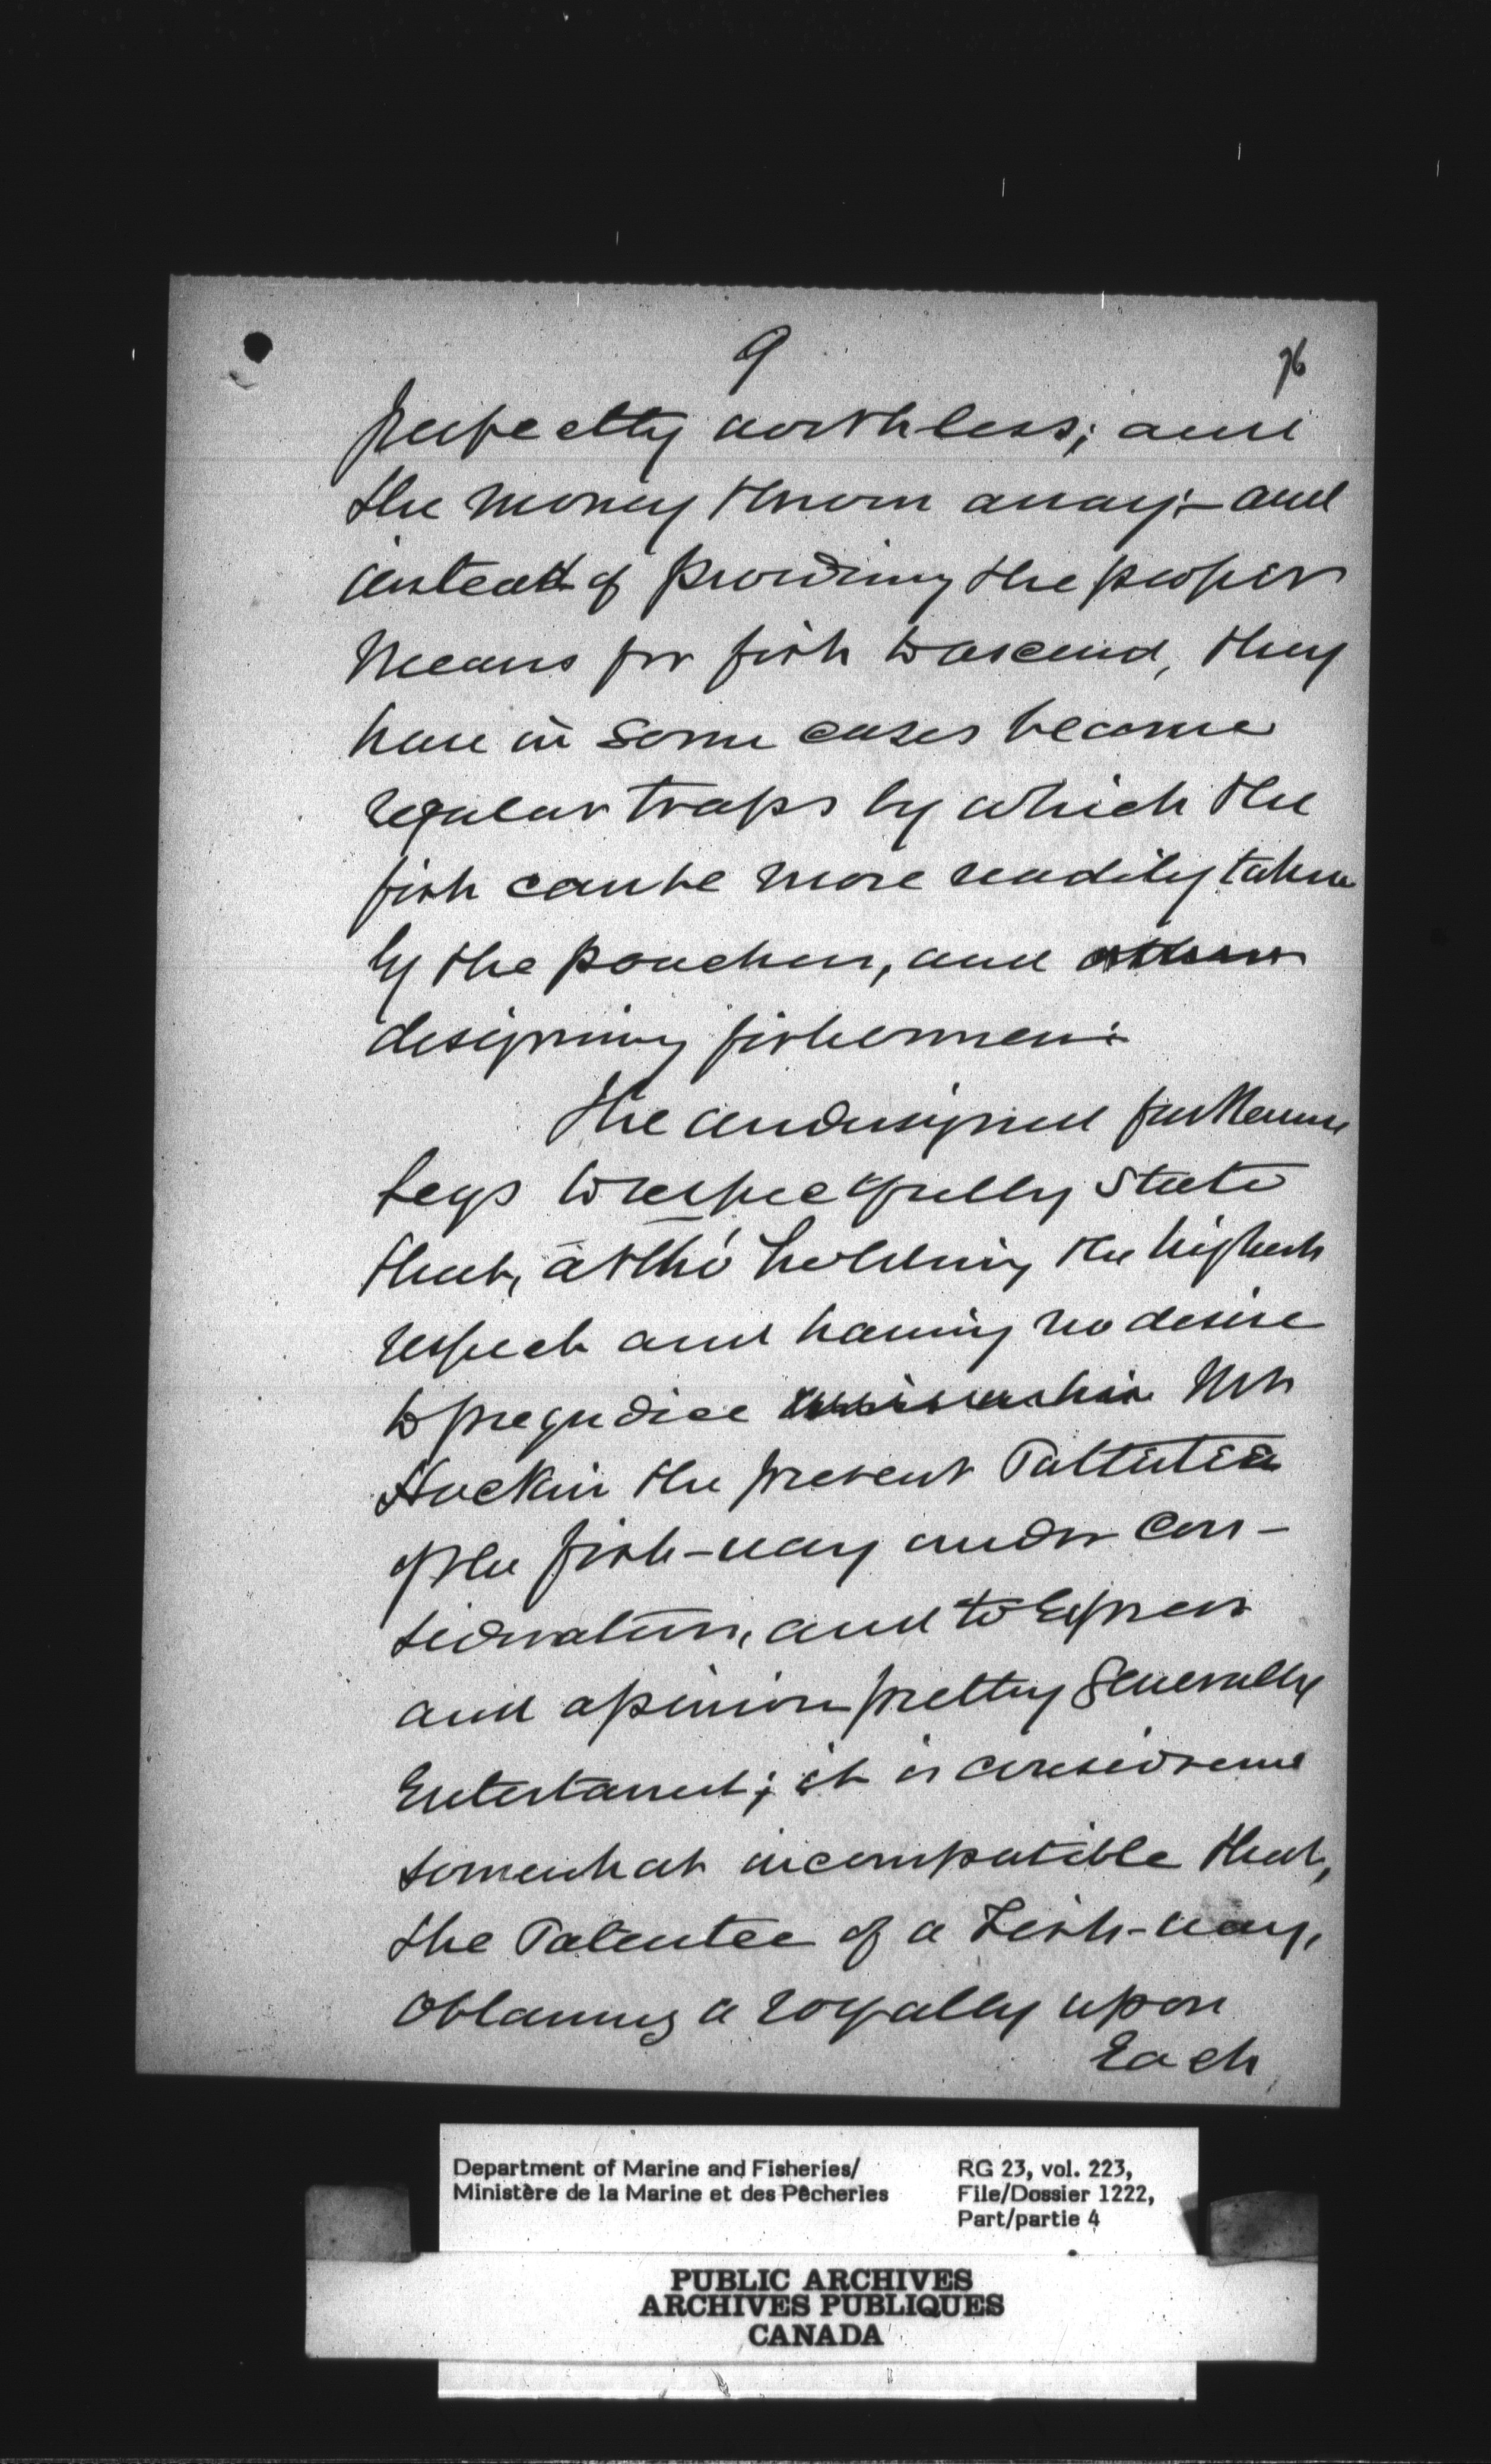 9
76
perfectly worthless; and
the money thrown away;- and
instead of providing the proper
means for fish to ascend, they
have in some cases become
regular traps by which the
fish can be more readily taken
by the poachers, and
designing fishermen:
The undersigned furthermore
begs to respectfully state
that, altho' holding the highest
respect and having no desire
to prejudice Mr
Hockin the present Pattentee
of the fish-way under con-
sideration, and to express
and opinion pretty generally
Entertained; it is considered
somewhat incompatible that,
the Patentee of a Fish-way,
obtaining a royalty upon
Each
Department of Marine and Fisheries/
Ministère de la Marine et des Pêcheries
RG 23, vol. 223,
File/Dossier 1222,
Part/partie 4
PUBLIC ARCHIVES
ARCHIVES PUBLIQUES
CANADA